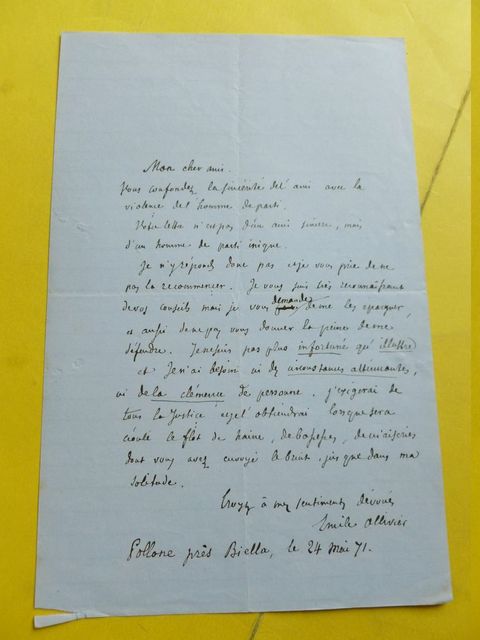 Mon cher ami.
Vous confondez la sincérité de l'ami avec la
violence de l'homme de parti.
Votre lettre n'est pas d'un ami sincère, mais
d'un homme de parti inique.
Je n'y réponds donc pas et je vous prie de ne
pas la recommencer. Je vous suis très reconnaissant
de vos conseils mais je vous demande de me les épargner,
et aussi de ne pas vous donner la peine de me
défendre. Je ne suis pas plus infortuné qu'illustre
et je n'ai besoin ni des circonstances atténuantes,
ni de la clémence de personne. J'exigerai de
tous la Justice et je l'obtiendrai lorsque sera
écoulé le flot de haine, de de niaiseries
dont vous avez envoyé le bruit jusque dans ma
solitude.
Croyez à mes sentiments dévoués
Emile Ollivier
Pollone près Biella, le 24 mai 71.